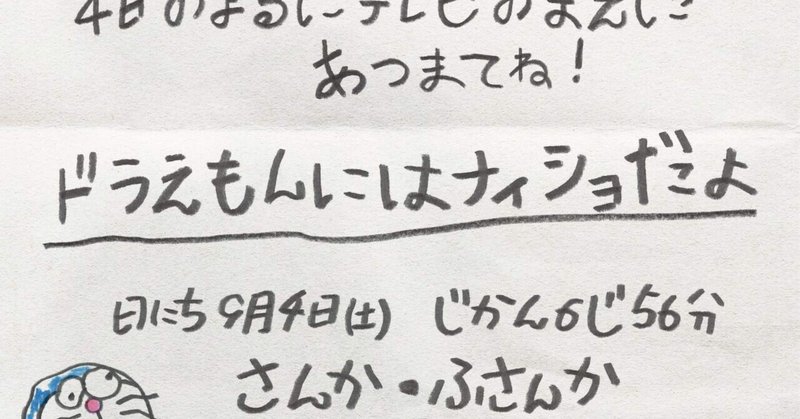 4日のよるにテレビのまえに
あつまてね!
ドラえもんにはナイショだよ
日にち9月4日(土) じかん6じ56分
さんか・ふさんか